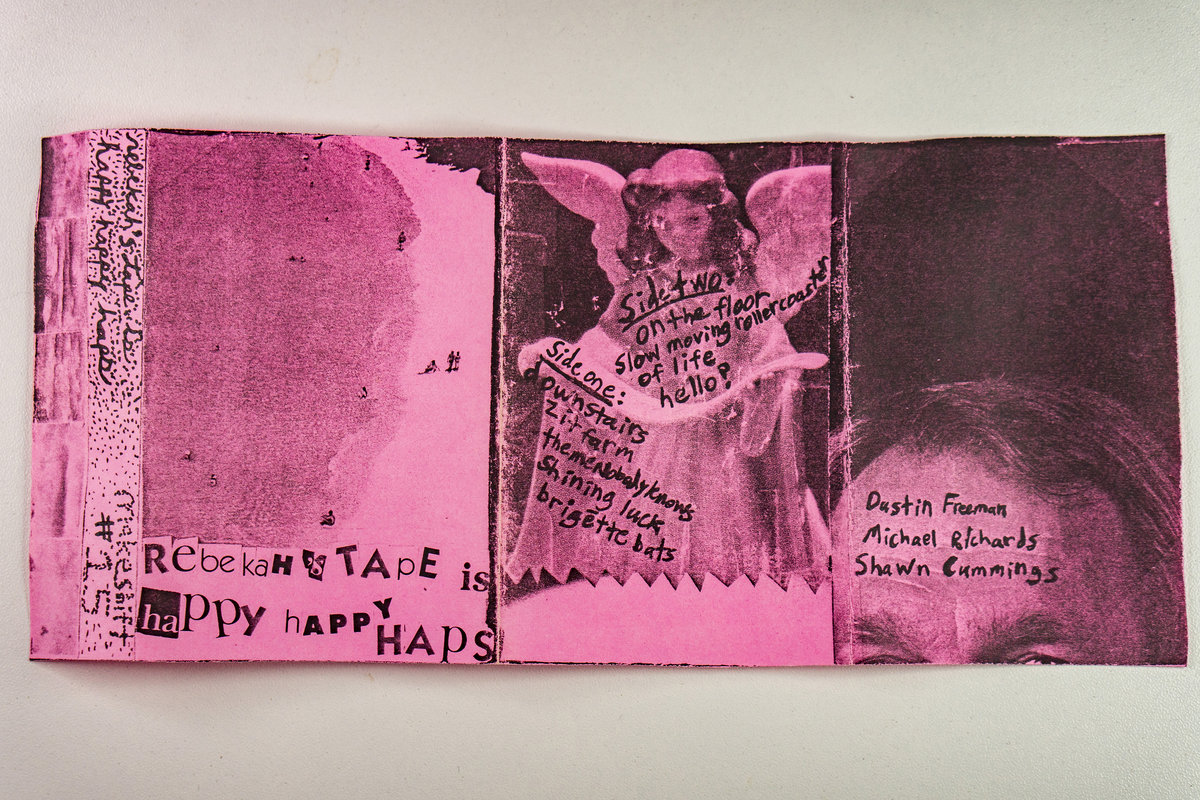 rebekah's tape is
happy happy haps
makeshift
#
Rebekah's TApE is
happy hAPPY HAps
Side two:
on the floor
slow moving rollercoaster
of life
hello?
Side one:
downstairs
zit farm
the men
knows
shining luck
brigette bats
Dustin Freeman
Michael Richards
Shawn Cummings